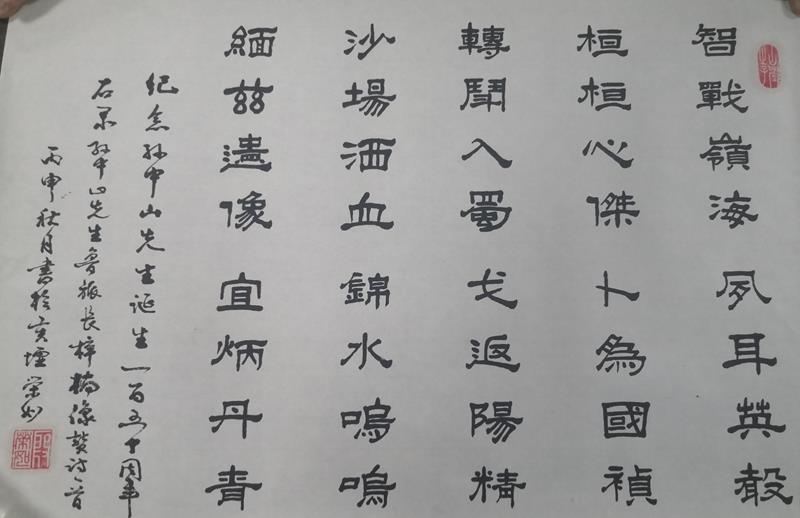 智戰嶺海夙耳英聲
桓桓心傑卜為國禎
轉鬪入蜀戈返陽精
沙場洒血錦水嗚嗚
緬茲遺像宜炳丹青
纪念孙中山先生诞生一百五十周年
右录孙中山先生鲁振长梓楠像赞诗一首
丙申秋月書於